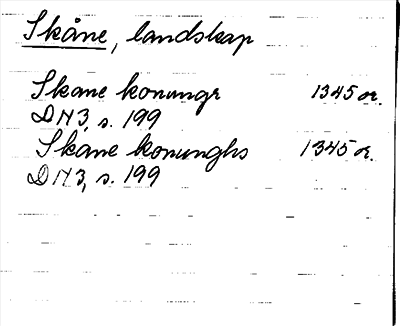 Skåne, landskap
Skane konungr 1345 or.
DN 3, s. 199
Skane konunghs 1345 or.
DN 3, s. 199